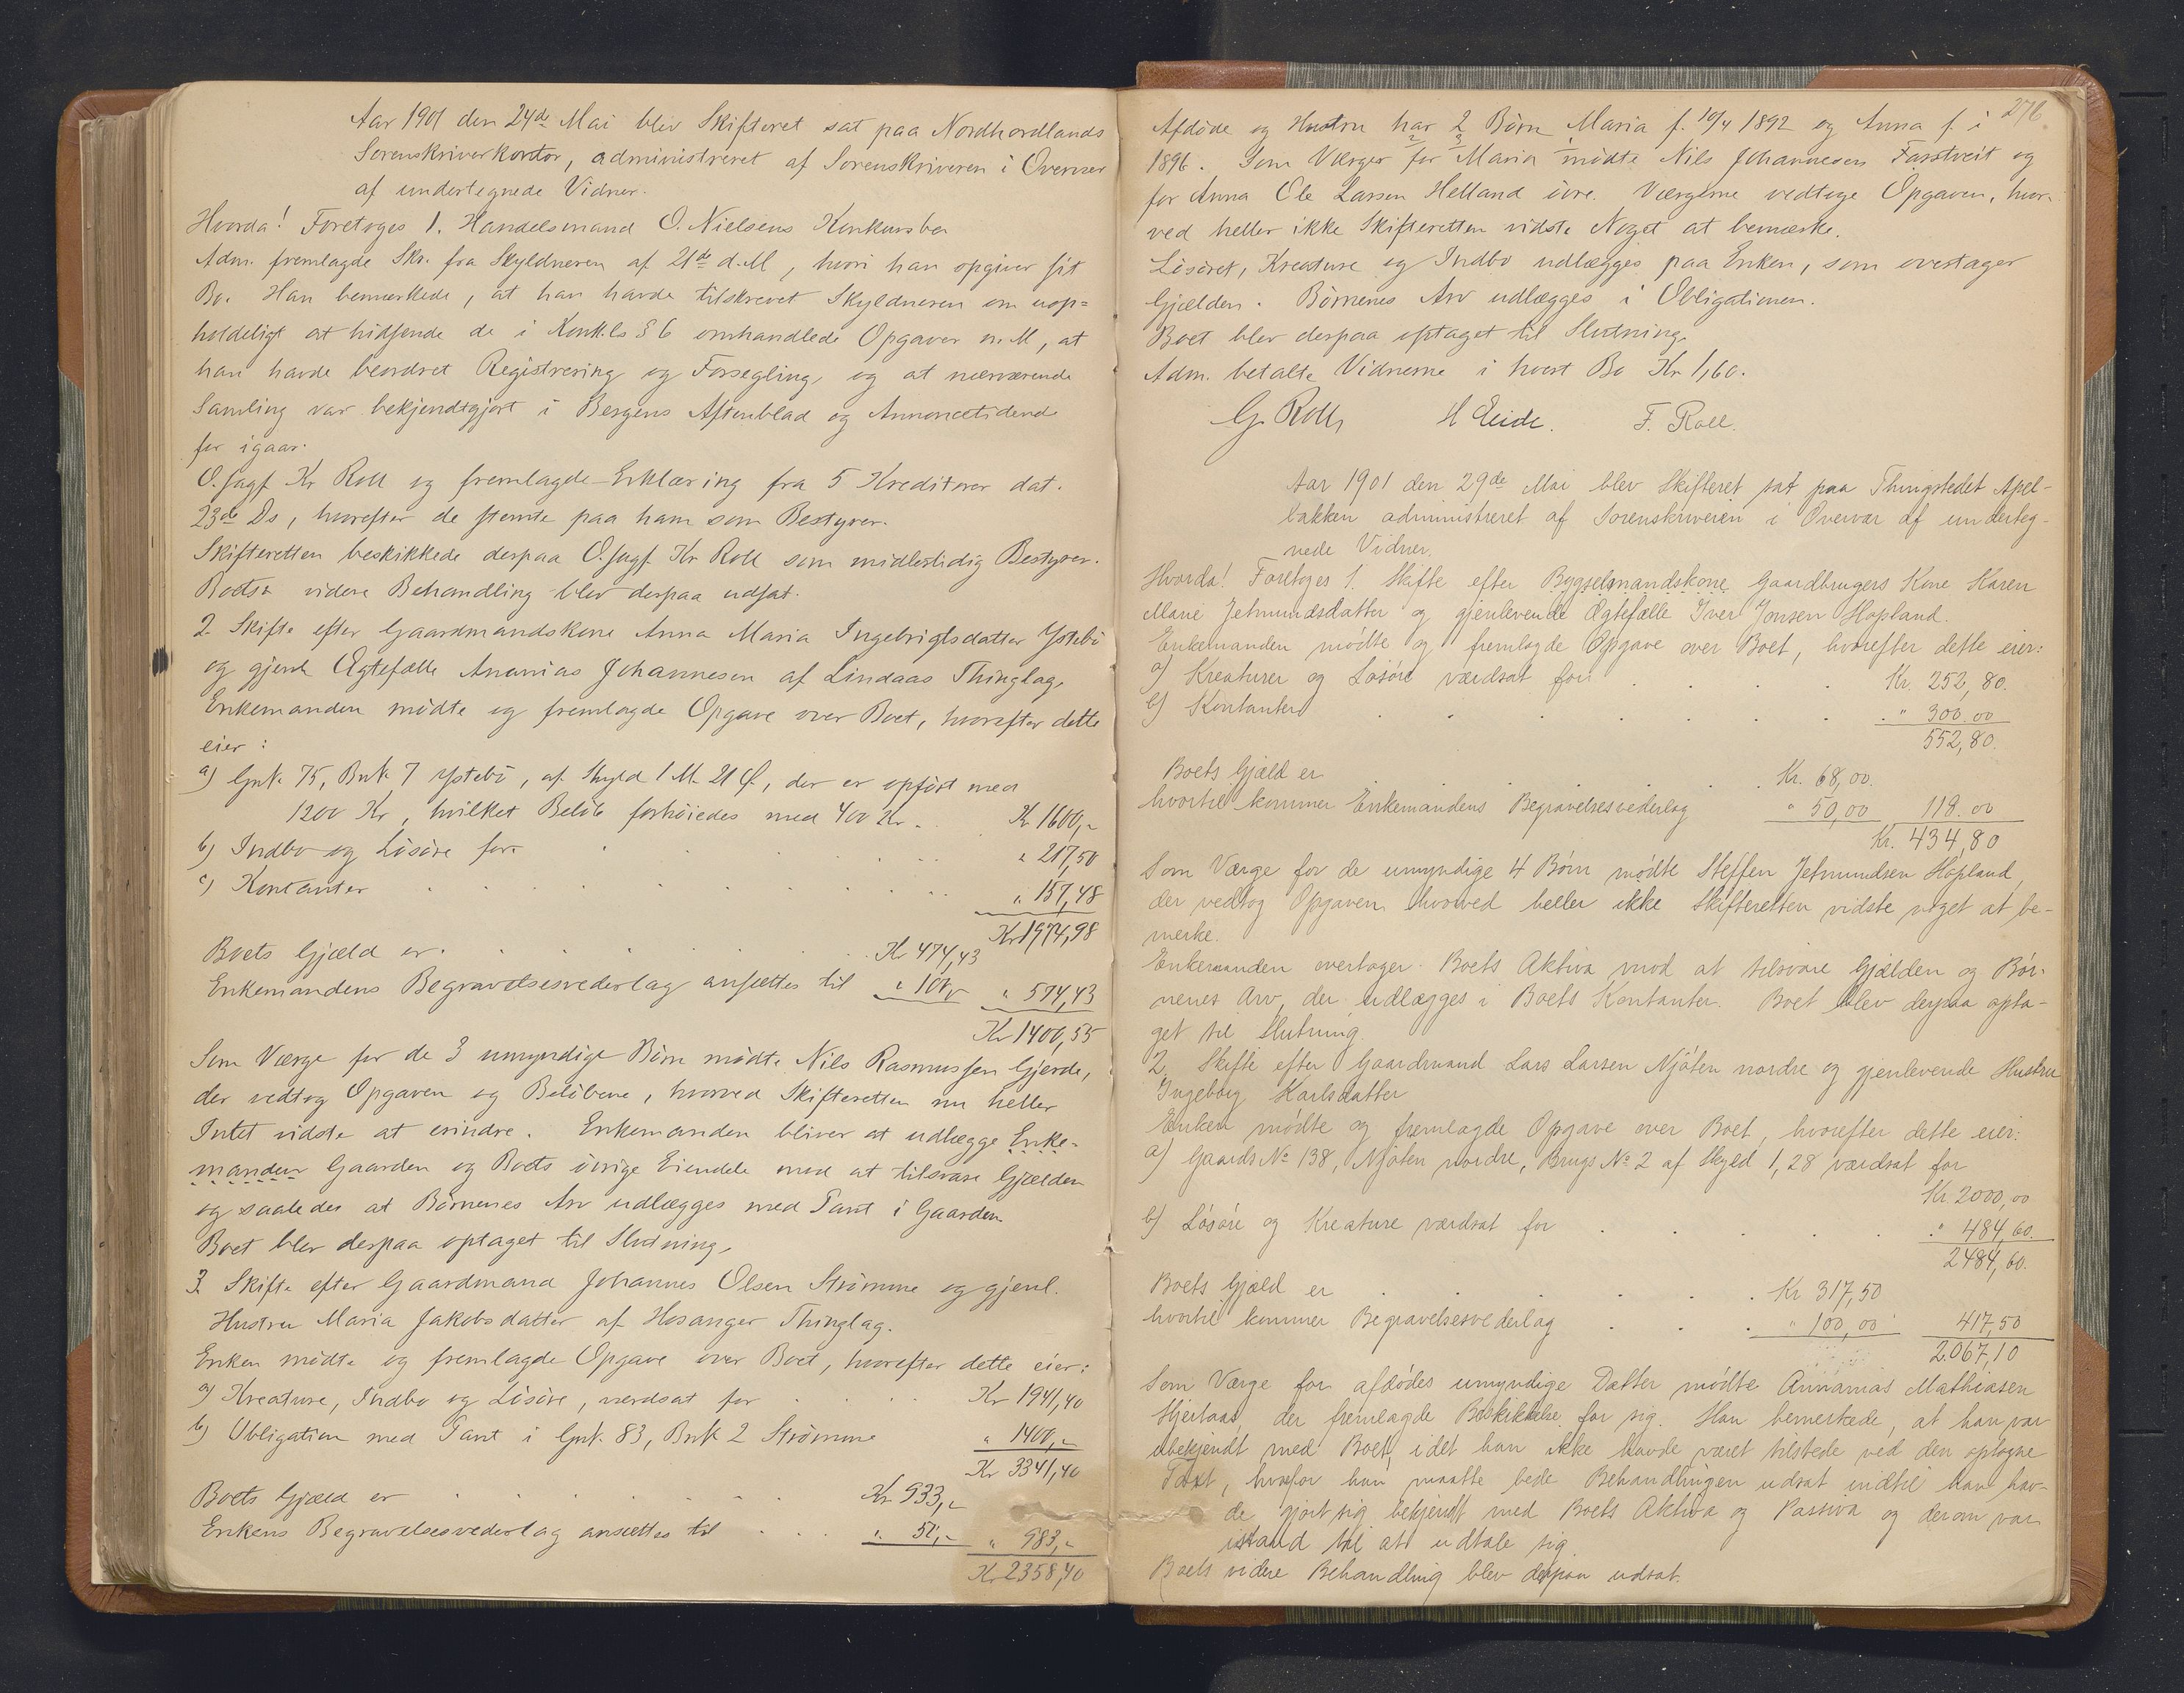 Aar 1901 den 24de Mai blev Skifteret sat paa Nordhordlands
Sorenskriverkontor, administreret af Sorenskriveren i Overvær
af undertegnede Vidner.
Hvorda! Foretoges 1. Handelsmand O. Nielsens Konkursbo
Adm. fremlagde Skr. fra Skyldneren af 21de d. M, hvori han opgiver sit
Bo. Han bemærkede, at han havde tilskrevet Skyldneren om uop=
holdeligt at hidsende de i Konk.ls § 6 omhandlede Opgaver m. M, at
han havde beordret Registrering og Forsegling, og at nærværende
Samling var bekjendtgjort i Bergens Aftenblad og Annoncetidende
for igaar.
O. sagf Kr Roll og fremlagde Erklæring fra 5 Kreditorer dat.
23de Ds, hvorefter de stemte paa ham som Bestyrer.
Skifteretten beskikkede derpaa O. sagf. Kr Roll som midlertidig Bestyrer.
Boets videre Behandling blev derpaa udsat.
2. Skifte efter Gaardmandskone Anna Maria Ingebrigtsdatter Ystebö
og gjenl. Ægtefælle Ananias Johannesen af Lindaas Thinglag.
Enkemanden mødte og fremlagde Opgave over Boet, hvorefter dette
eier:
a) Gnk. 75, Bnk 7 Ystebö, af Skyld 1 M. 21 Ø, der er opført med
1200 Kr, hvilket Beløb forhøiedes med 400 Kr. Kr 1600,-
b) Indbo og Løsøre for " 217,50
c) Kontanter " 157,48
Kr 1974,98
Boets Gjæld er Kr 474,43
Enkemandens Begravelsesvederlag ansættes til " 100,- " 574,43
Kr 1400,55
Som Værge for de 3 umyndige Børn mødte Nils Rasmussen Gjerde,
der vedtog Opgaven og Beløbene, hvorved Skifteretten nu heller
Intet vidste at erindre. Enkemanden bliver at udlægge Enke-
manden Gaarden og Boets øvrige Eiendele mod at tilsvare Gjælden
og saaledes at Børnenes Arv udlægges med Pant i Gaarden
Boet blev derpaa optaget til Slutning.
3. Skifte efter Gaardmand Johannes Olsen Strømme og gjenl.
Hustru Maria Jakobsdatter af Hosanger Thinglag.
Enken mødte og fremlagde Opgave over Boet, hvorefter dette eier:
a) Kreature, Indbo og Løsøre, værdsat for Kr 1941,40
b) Obligation med Pant i Gnk. 83, Bnk 2 Strømme " 1400,-
Kr 3341,40
Boets Gjæld er Kr 933,-
Enkens Begravelsesvederlag ansættes til " 50,- " 983,-
Kr 2358,40
276
Afdøde og Hustru har 2 Børn Maria f. 10/4 1892 og Anna f. i
1896. Som Værger for Maria mødte Nils Johannesen Fasstveit og
for Anna Ole Larsen Helland övre. Værgerne vedtoge Opgaven, hvor-
ved heller ikke Skifteretten vidste Noget at bemærke.
Løsøret, Kreature og Indbo udlægges paa Enken, som overtager
Gjælden. Børnenes Arv udlægges i Obligationen.
Boet blev derpaa optaget til Slutning.
Adm. betalte Vidnerne i hvert Bo Kr 1,60.
G. Roll, H Eide. F. Roll.
Aar 1901 den 29de Mai blev Skifteret sat paa Thingstedet Apel-
bakken administreret af Sorenskriveren i Overvær af underteg-
nede Vidner.
Hvorda! Foretoges 1. Skifte efter Bygselmandskone Gaardbrugers Kone Karen
Marie Jetmundsdatter og gjenlevende Ægtefælle Iver Jonsen Hopland.
Enkemanden mødte og fremlagde Opgave over Boet, hvorefter dette eier:
a) Kreaturer og Løsøre værdsat for Kr. 252,80.
b) Kontanter " 300.00
552,80.
Boets Gjæld er Kr. 68,00.
hvortil kommer Enkemandens Begravelsesvederlag " 50,00 118.00
Kr. 434,80
Som Værge for de umyndige 4 Børn mødte Steffen Jetmundsen Hopland,
der vedtog Opgaven hvorved heller ikke Skifteretten vidste noget at be-
merke.
Enkemanden overtager Boets Aktiva mod at tilsvare Gjælden og Bør-
nenes Arv, der udlægges i Boets Kontanter. Boet blev derpaa opta-
get til Slutning.
2. Skifte efter Gaardmand Lars Larsen Njøten nordre og gjenlevende Hustru
Ingeborg Karlsdatter
Enken mødte og fremlagde Opgave over Boet, hvorefter dette eier:
a) Gaards No 138, Njøten nordre, Brugs No 2 af Skyld 1,28 værdsat for
Kr. 2000,00
b) Løsøre og Kreature værdsat for " 484,60.
2484,60.
Boets Gjæld er Kr 317,50
hvortil kommer Begravelsesvederlag " 100,00 417,50
2.067,10
Som Værge for afdødes umyndige Datter mødte Annanias Mathiasen
Hjertaas, der fremlagde Beskikkelse for sig. Han bemerkede, at han var
ubekjendt med Boet, idet han ikke havde været tilstede ved den optagne
Taxt, hvorfor han maatte bede Behandlingen udsat indtil han hav-
de gjort sig bekjendt med Boets Aktiva og Passiva og derom var
istand til att udtale sig.
Boets videre Behandling blev derpaa udsat.